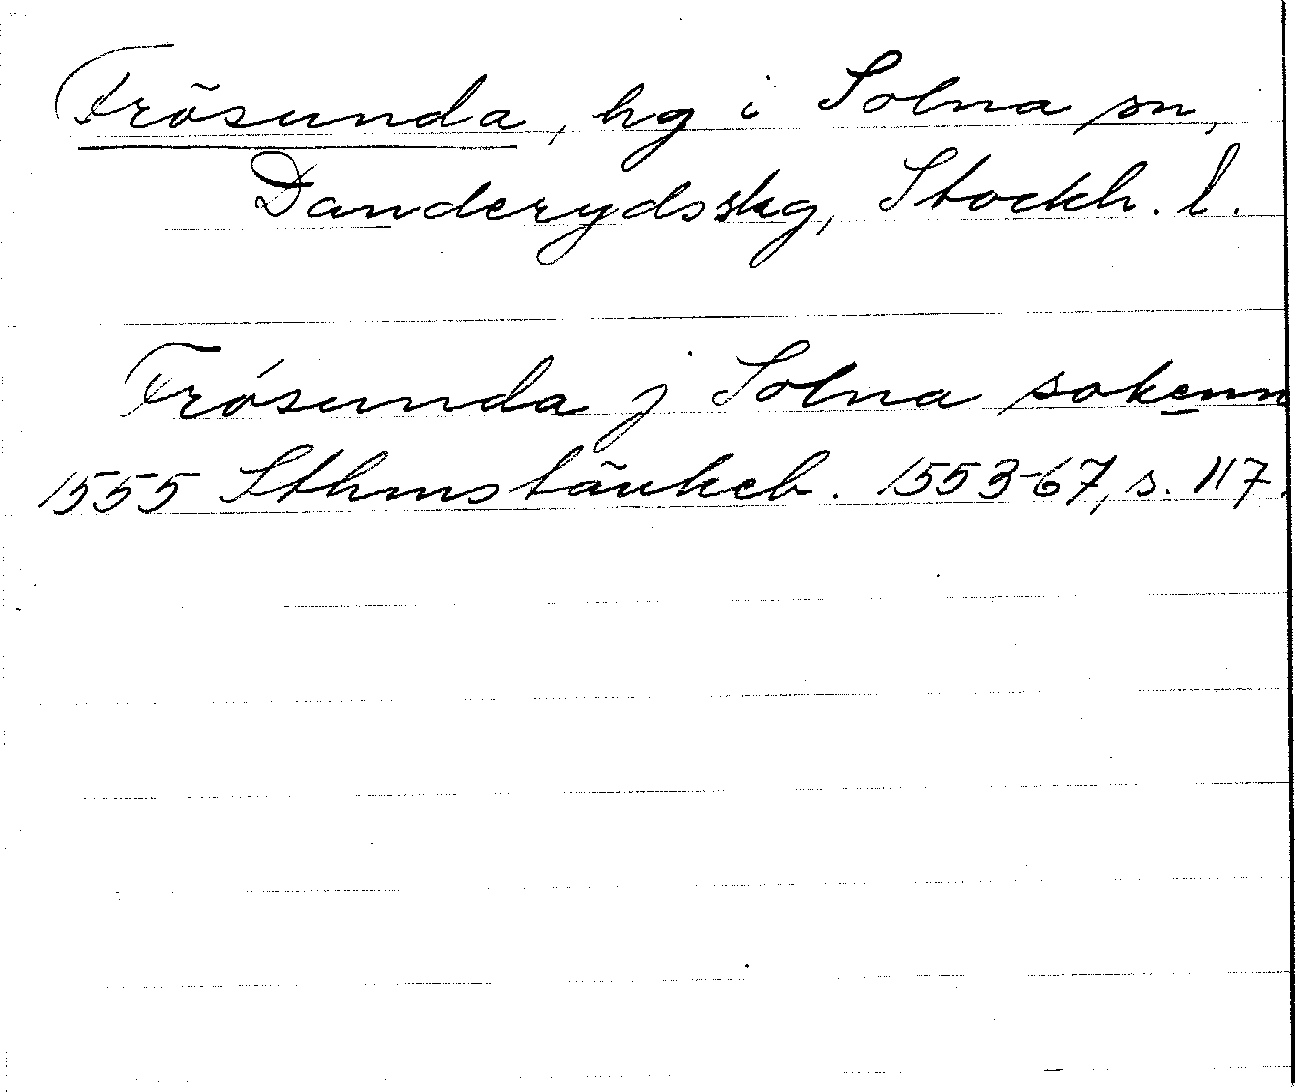 Frösunda, hg i Solna sn,
Danderydsskg, Stockh. l.
Frósunda j Solna sokenn
1555 Sthmstänkeb. 1553-67, s. 117.